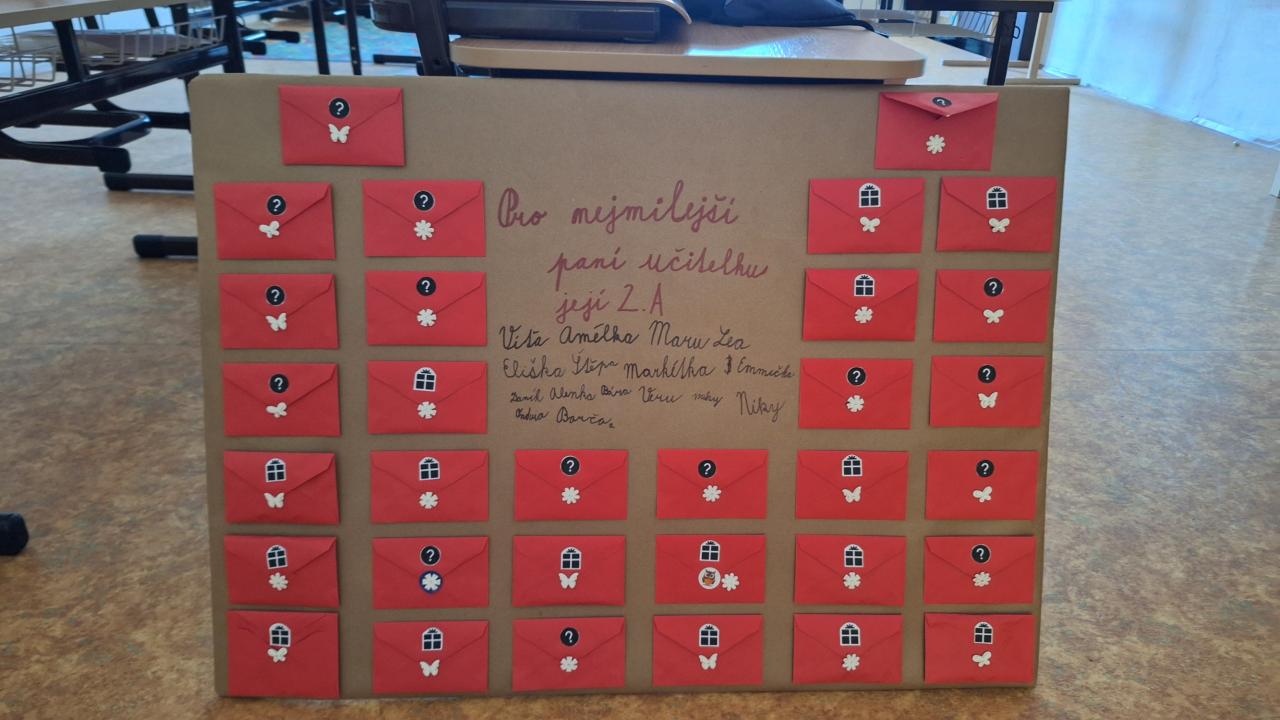 Pro nejmilejší
paní učitelku
její 2.A
Víťa Amélka Maru Lea
Eliška Štěpa Markétka Emmečka
Danik Alenka Bára Veru maky Niky
Ondra Barča
? ?